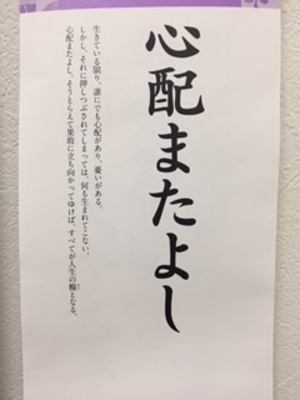 心配またよし
生きている限り、誰にでも心配があり、憂いがある。
しかし、それに押しつぶされてしまっては、何も生まれてこない。
心配またよし。そうとらえて果敢に立ち向かってゆけば、すべてが人生の糧となる。